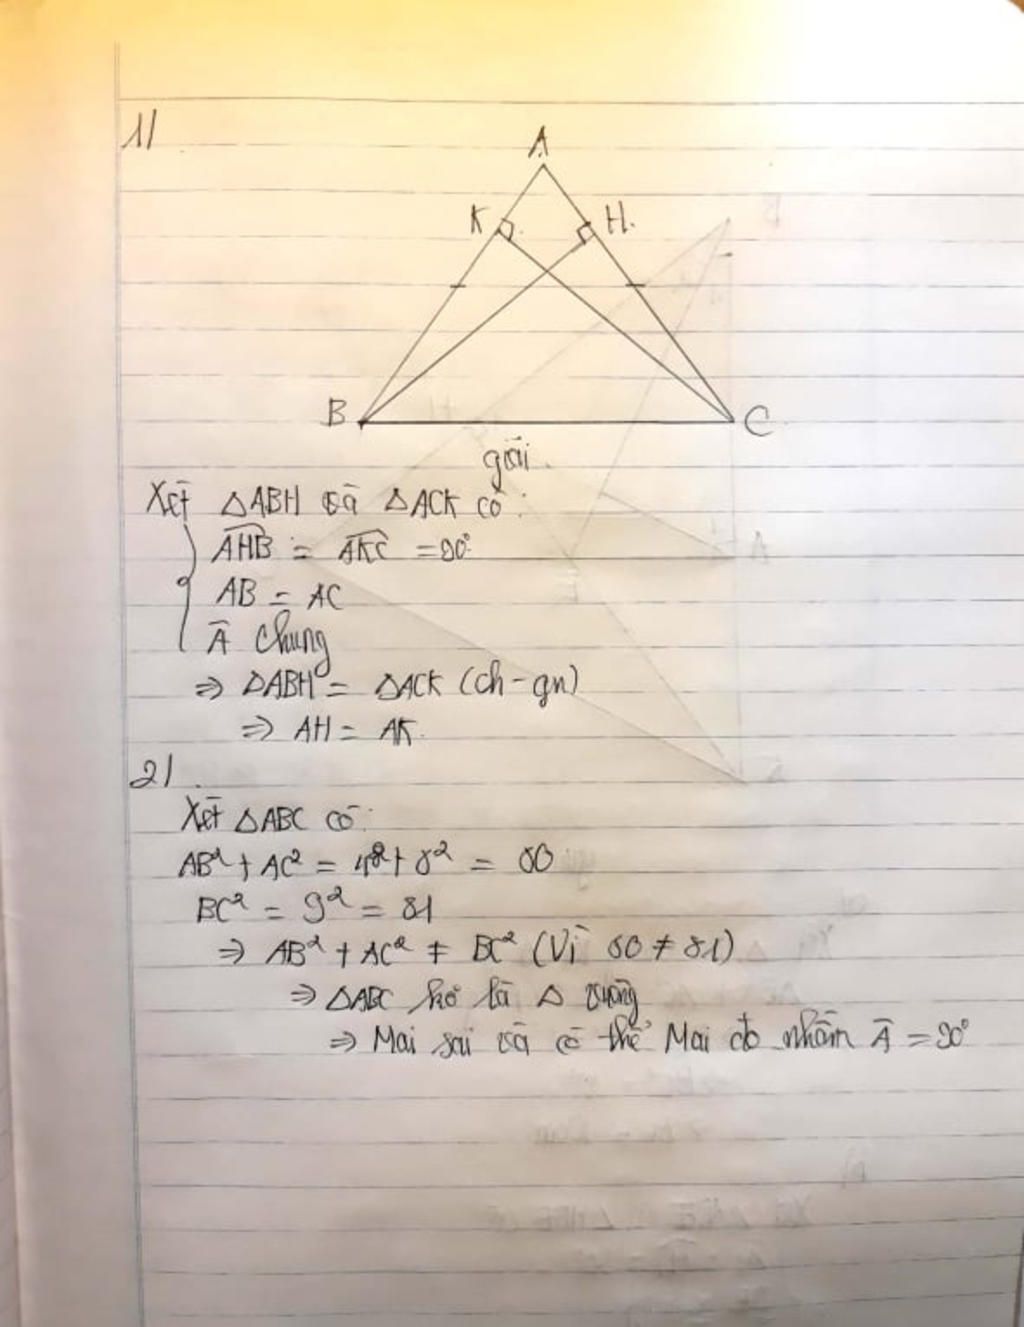 1/
A
K H.
B C
giải.
Xét △ABH và △ACK có:
AHB = AKC = 90°
AB = AC
Â chung
⇒ △ABH = △ACK (ch-gn)
⇒ AH = AK.
2/.
Xét △ABC có:
AB² + AC² = 4² + 8² = 80
BC² = 9² = 81
⇒ AB² + AC² ≠ BC² (Vì 80 ≠ 81)
⇒ △ABC kó là △ vuông
⇒ Mai sai và có thể Mai đo nhầm Â = 90°